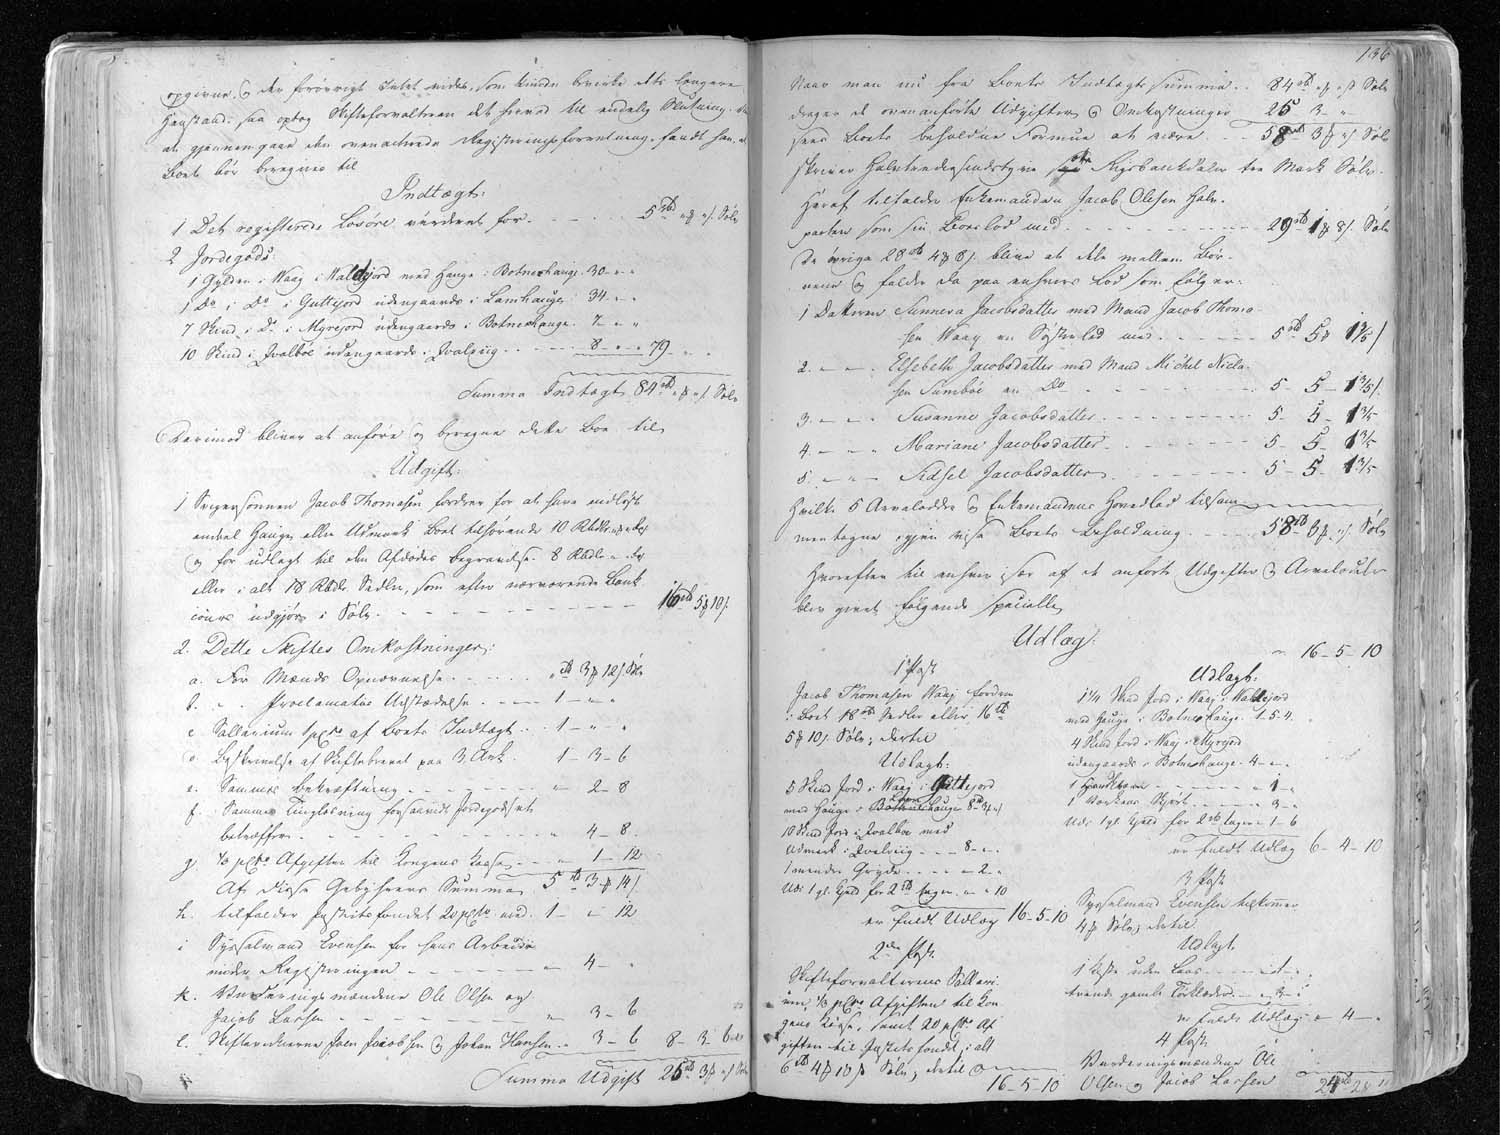 opgivne, og der forøvrigt Intet vides, som kunde bevirke dets længere
Henstand: saa optog Skifteforvalteren det herved til endelig Slutning.
at gjennemgaae den ovenanførte Registreringsforretning, fandt han, at
Boet bør beregnes til
Indtægt:
1 Det registerede Løsøre vurderet for. 5 rbd „ ß Sølv
2 Jordegods:
1 Gylden i Waag i Waldfjord med Hauge i Botnerhauge 30 „ „
1 Do i Do i Guttefjord udengaards i Lamhauge 34 „ „
7 Skind i Do i Myrefjord udengaards i Botnerhauge 7 „ „
10 Skind i Qvalbøe udengaards i Qvalviig 8 „ „ 79 „ „
Summa Indtægt 84 rbd „ ß Sølv
Derimod bliver at anføre og beregne dette Boe til
Udgift:
1 Svigersønnen Jacob Thomasen fordrer for at have indløst
endeel Hauge eller Udmark Boet tilhørende 10 Rbdlr
og for udlagt til den Afdødes begravelse 8 Rbdlr
eller i alt 18 Rbdlr Sedler, som efter nærværende Bank
cours udgjør i Sølv 16 rbd 5 10 ß
2. Dette Skiftes Omkostninger:
a. For Mænds Opnævnelse „ rbd 3 12 ß Sølv
b. „ Proclamatas Udstædelse 1 „ „
c Sallarium 1 pCto af Boets Indtægt 1 „ „
d. Beskrivelse af Skiftebrevet paa 3 Ark. 1 - 3 - 6
e. Sammes bekræftning „ 2 - 8
f. Sammes Tinglæsning forsaavidt Jordegodset
betræffer „ 4 - 8
g ½ pCto Afgiften til Kongens Kasse „ 1 - 12
Af disse Gebyhrers Summa 5 rbd 3 14 ß
h. tilfalder Justitsfondet 20 pCto med 1 - „ 12
i Sysselmand Evensen for hans Arbeide
under Registeringen „ 4 - „
k. Vurderingsmændene Ole Olsen og
Jacob Larsen „ 3 - 6
l. Skiftevidnerne Joen Jacobsen og Johan Hansen „ 3 - 6 8 - 3 6
Summa Udgift 25 rbd 3 „ ß Sølv
136
Naar man nu fra Boets Indtægts summa 84 rbd „ ß Sølv
drager de ovenanførte Udgifter og Omkostninger 25 3 „
sees Boets beholdne Formue at være 58 rbd 3 „ ß Sølv
skriver Halvtredsindstyve otte Rigsbankdaler tre Mark Sølv.
Heraf tilfalder Enkemanden Jacob Olsen Halv
parten som sin Boeslod med 29 rbd 1 8 ß Sølv
De øvrige 28 rbd 4 8 ß blive at dele mellem Bør-
nene og falder da paa enhvers Lod som følger:
1 Datteren Sunneva Jacobsdatter med Mand Jacob Thoma
sen Waag en Søsterlod med 5 rbd 5 13/5 ß
2. „ „ Elsebeth Jacobsdatter med Mand Michel Nicla
sen Sumbøe en Do 5 - 5 - 13/5 ß
3. „ „ Susanne Jacobsdatter 5 - 5 - 13/5
4. „ „ Mariane Jacobsdatter 5 - 5 - 13/5
5. „ „ Sidsel Jacobsdatter 5 - 5 - 13/5
Hvilke 5 Arvelodder og Enkemandens Hovedlod tilsam
mentagne igjen vise Boets Beholdning 58 rbd 3 „ ß Sølv
Hvorefter til enhver især af de anførte Udgifter og Arvelodder
blev givet følgende specielle
Udlæg:
1ste Post
Jacob Thomasen Waag fordrer
i Boet 18 rbd Sedler eller 16 rbd
5 10 ß Sølv; dertil
Udlagt:
5 Skind Jord i Waag i Guttefjord
med Hauge i Lamhauge 8 rbd 3
10 Skind Jord i Qvalbøe med
Udmark i Qvalviig 8 „ „
1 mindre Gryde „ 2 „
Uds 1 gl. Qvæd for 2 rbd tagen „ „ 10
er fuldt Udlæg 16 - 5 - 10
2den Post
Skifteforvalterens Sallari
um, ½ pCto Afgiften til Kon
gens Kasse, samt 20 pCto Af
giften til Justitsfondet, i alt
6 rbd 4 10 ß Sølv; dertil
16 - 5 - 10
16 - 5 - 10
Udlagt:
1¼ Skind Jord i Waag i Waldefjord
med Hauge i Botnerhauge 1 - 5 - 4
4 Skind Jord i Waag i Myrefjord
udengaards i Botnerhauge 4 - „
„ 1 „
„ 3 „
Uds 1 gl. Qvæd for 2 rbd tagen „ 1 - 6
er fuldt Udlæg 6 - 4 - 10
3 Post
Sysselmand Evensen tilkommer
4 Sølv; dertil
Udlagt
1 Kiste uden Laas „ 1 „
trende gamle Tørklæder „ 3 „
er fuldt Udlæg „ 4 „
4 Post
Vurderingsmændene Ole
Olsen og Jacob Larsen